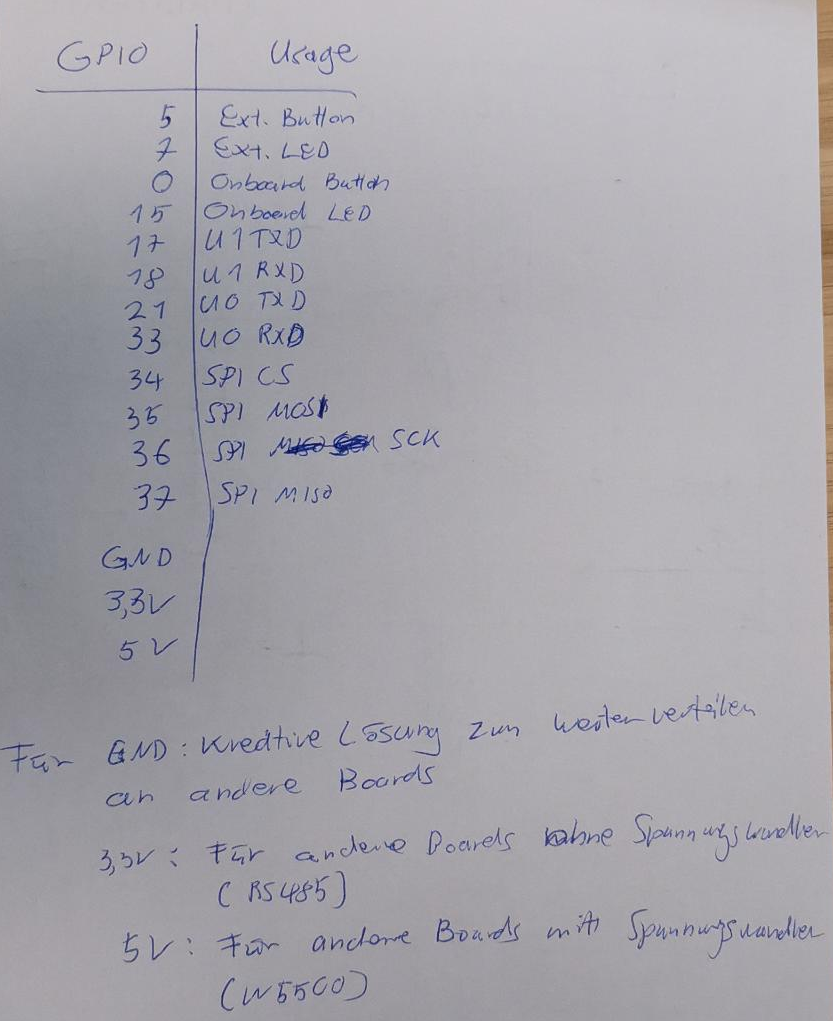 GPIO Usage
5 Ext. Button
7 Ext. LED
0 Onboard Button
15 Onboard LED
17 U1TXD
18 U1 RXD
21 U0 TXD
33 U0 RXD
34 SPI CS
35 SPI MOSI
36 SPI SCK
37 SPI MISO
GND
3,3V
5V
Für GND: Kreative Lösung zum weiterverteilen
an andere Boards
3,3V: Für andere Boards ohne Spannungswandler
(RS485)
5V: Für andere Boards mit Spannungswandler
(W5500)